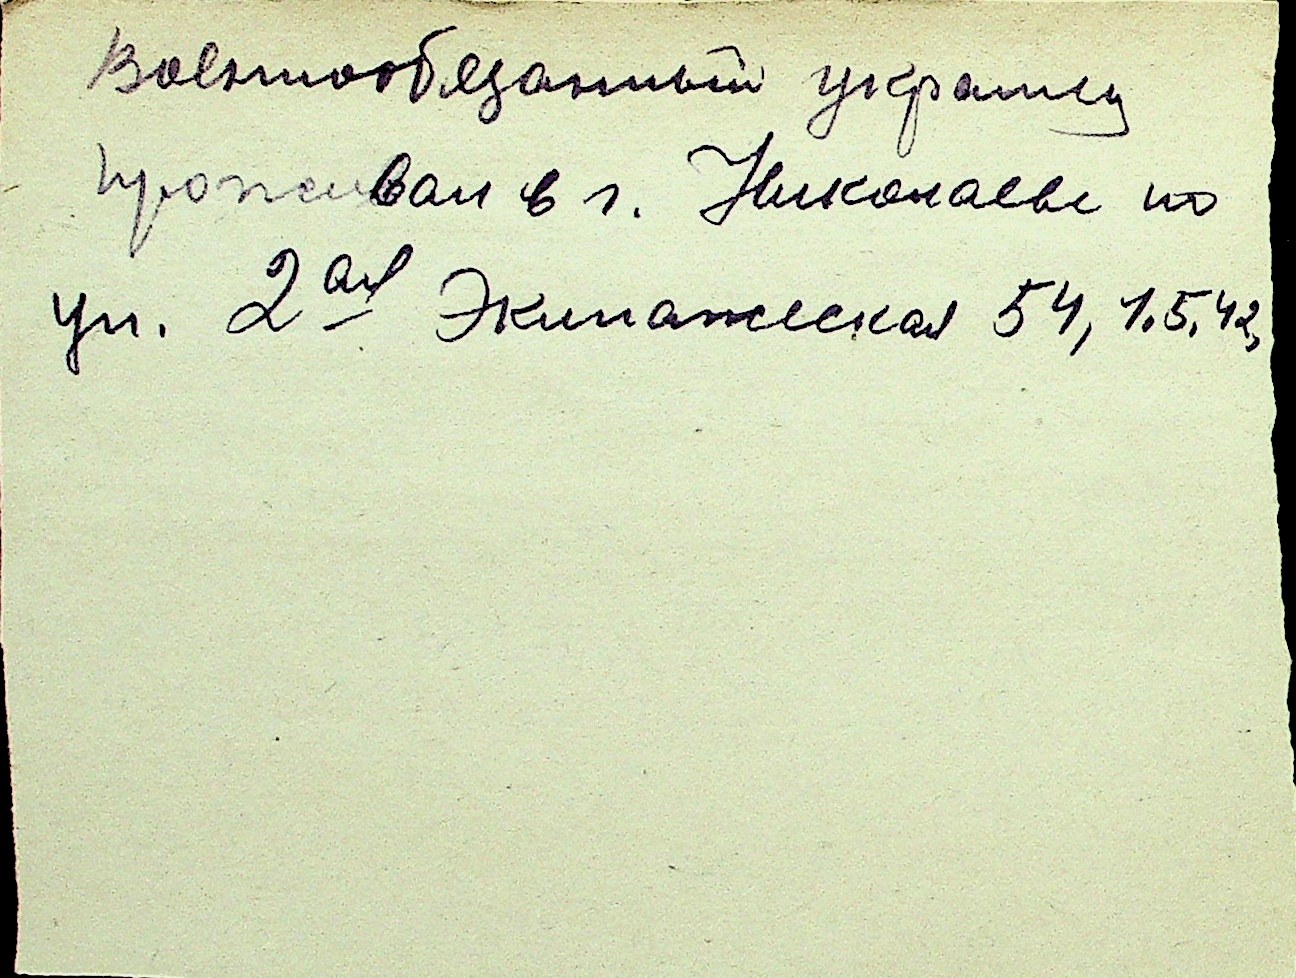 Военнообязанный украинец
проживал в г. Николаеве по
ул. 2ая Экипажеская 54, 1.5.42,